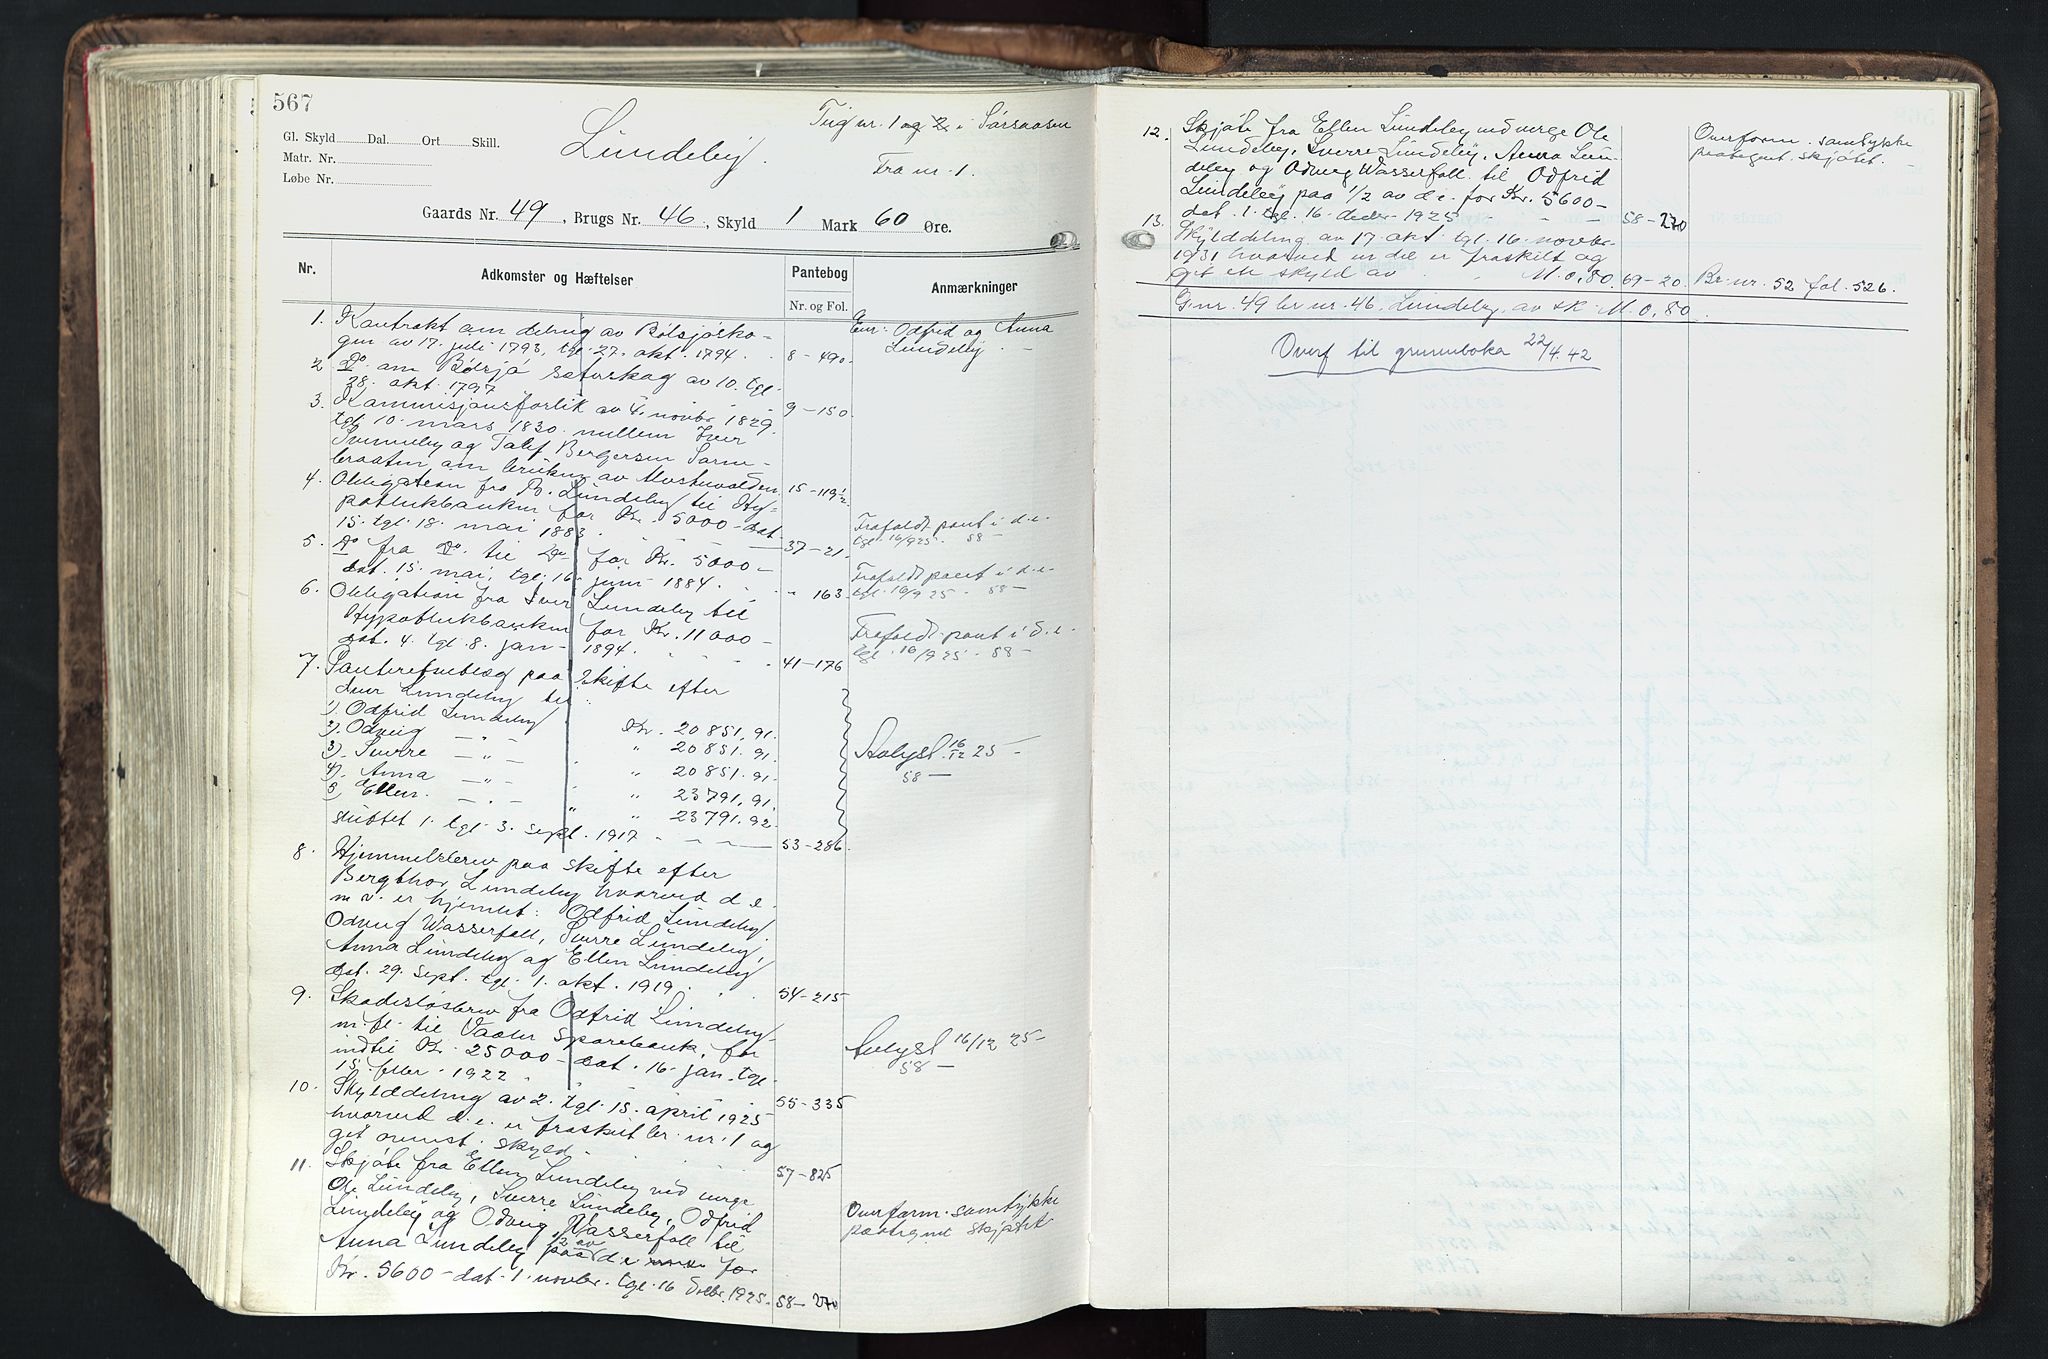 567
Gl. Skyld Dal. Ort Skill.
Matr. Nr.
Løbe Nr.
Lundeby.
Teig nr. 1 og 2 i Sørsaasen
Fra nr. 1.
Gaards Nr. 49, Brugs Nr. 46, Skyld 1 Mark 60 Øre.
Nr. Adkomster og Hæftelser Pantebog Anmærkninger
Nr. og Fol.
1. Kontrakt om deling av Bølsjøsko-
gen av 17. juli 1793, tgl. 27. okt. 1794. 8-490.
Eier: Odfrid og Anna
Lundeby.
2 Do om Børsjø sæterskog av 10. tgl.
28. okt. 1797 9-150.
3. Kommisjonsforlik av 4. novbr 1829.
tgl. 10. mars 1830. mellem Iver
Svinneby og Tolef Bergersen
braaten om bruken av 15-119½
4. Obligation fra B. Lundeby til Hy-
potekbanken for Kr. 5000- dat.
15. tgl. 18. mai 1883 37-21.
Frafaldt pant i d.e.
tgl. 16/9 25. 58-
5. Do fra Do. til Do for Kr. 5000-
dat. 15. mai, tgl. 16. juni 1884. " 163.
Frafaldt pant i d.e.
tgl. 16/9 25. 58-
6. Obligation fra Iver Lundeby til
Hypotekbanken for Kr. 11000-
dat. 4. tgl. 8. jan- 1894. 41-176
Frafaldt pant i d.e.
tgl. 16/9 25. 58-
7. Panterefutlæg paa skifte efter
Iver Lundeby til:
1) Odfrid Lundeby Kr. 20851,91.
2) Odveig -"- " 20851.91
3) Sverre -"- " 20851.91
4) Anna -"- " 23791,91.
5) Ellen. -"- " 23791.92
sluttet 1. tgl. 3. sept. 1917 53-286.
Avlyst 16/12 25-
58-
8. Hjemmelsbrev paa skifte efter
Bergthor Lundeby hvorved d.e.
m.v. er hjemlet: Odfrid Lundeby
Odveig Wasserfall, Sverre Lundeby,
Anna Lundeby og Ellen Lundeby
dat. 29. sept. tgl. 1. okt. 1919. 54-215
9. Skadesløsbrev fra Odfrid Lundeby
m. fl. til Vaaler Sparebank, for
indtil Kr. 25000- dat. 16. jan. tgl.
15. febr. 1922 55-335
Avlyst 16/12 25-
58-
10. Skylddeling av 2. tgl. 15. april 1925
hvorved d.e. er fraskilt br. nr. 1 og
git ovennt. skyld. 57-825
11. Skjøte fra Ellen Lundeby ved verge
Ole Lundeby, Sverre Lundeby, Odfrid
Lundeby og Odveig Wasserfall til
Anna Lundeby paa 1/2 av d.e. for
Kr. 5600- dat. 1. novbr. tgl. 16 decbr. 1925. 58-270
Overform. samtykke
paategnet skjøtet
12. Skjøte fra Ellen Lundeby ved verge Ole
Lundeby, Sverre Lundeby, Anna Lun-
deby og Odveig Wasserfall til Odfrid
Lundeby paa 1/2 av d.e. for Kr. 5600-
dat. 1. tgl. 16. decbr. 1925 58-270
Overform. samtykke
paategnet skjøtet.
13. Skylddeling av 17. okt. tgl. 16. novbr.
1931 hvorved en del er fraskilt og
git en skyld av M. 0,80. 69-20. Br. nr. 52 fol. 526.
G.nr. 49 br. nr. 46. Lundeby, av sk. M. 0,80.
Overf til grunnboka 22/4. 42